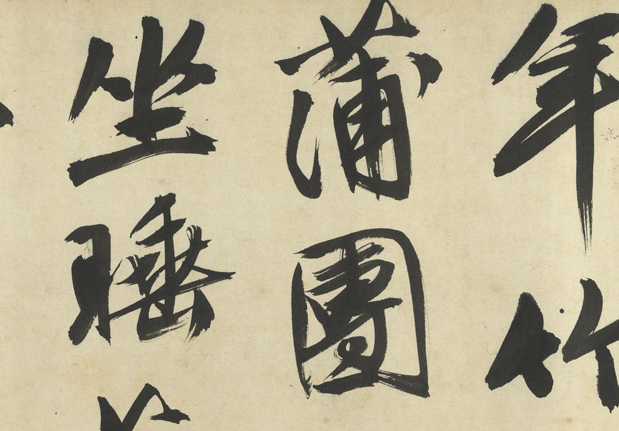 年竹
蒲團
坐睡